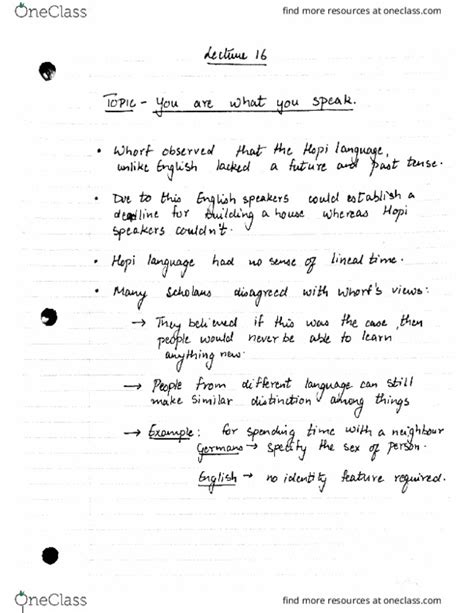 OneClass
find more resources at oneclass.com
Lecture 16
TOPIC - You are what you speak.
• Whorf observed that the Hopi language,
unlike English lacked a future and past tense.
• Due to this English speakers could establish a
deadline for building a house whereas Hopi
speakers couldn't.
• Hopi language had no sense of lineal time.
• Many Scholars disagreed with Whorf's views:
→ They believed if this was the case, then
people would never be able to learn
anything new.
→ People from different language can still
make similar distinction among things
→ Example: for spending time with a neighbour
Germans → specify the sex of person.
English → no identity feature required.
OneClass
find more resources at oneclass.com